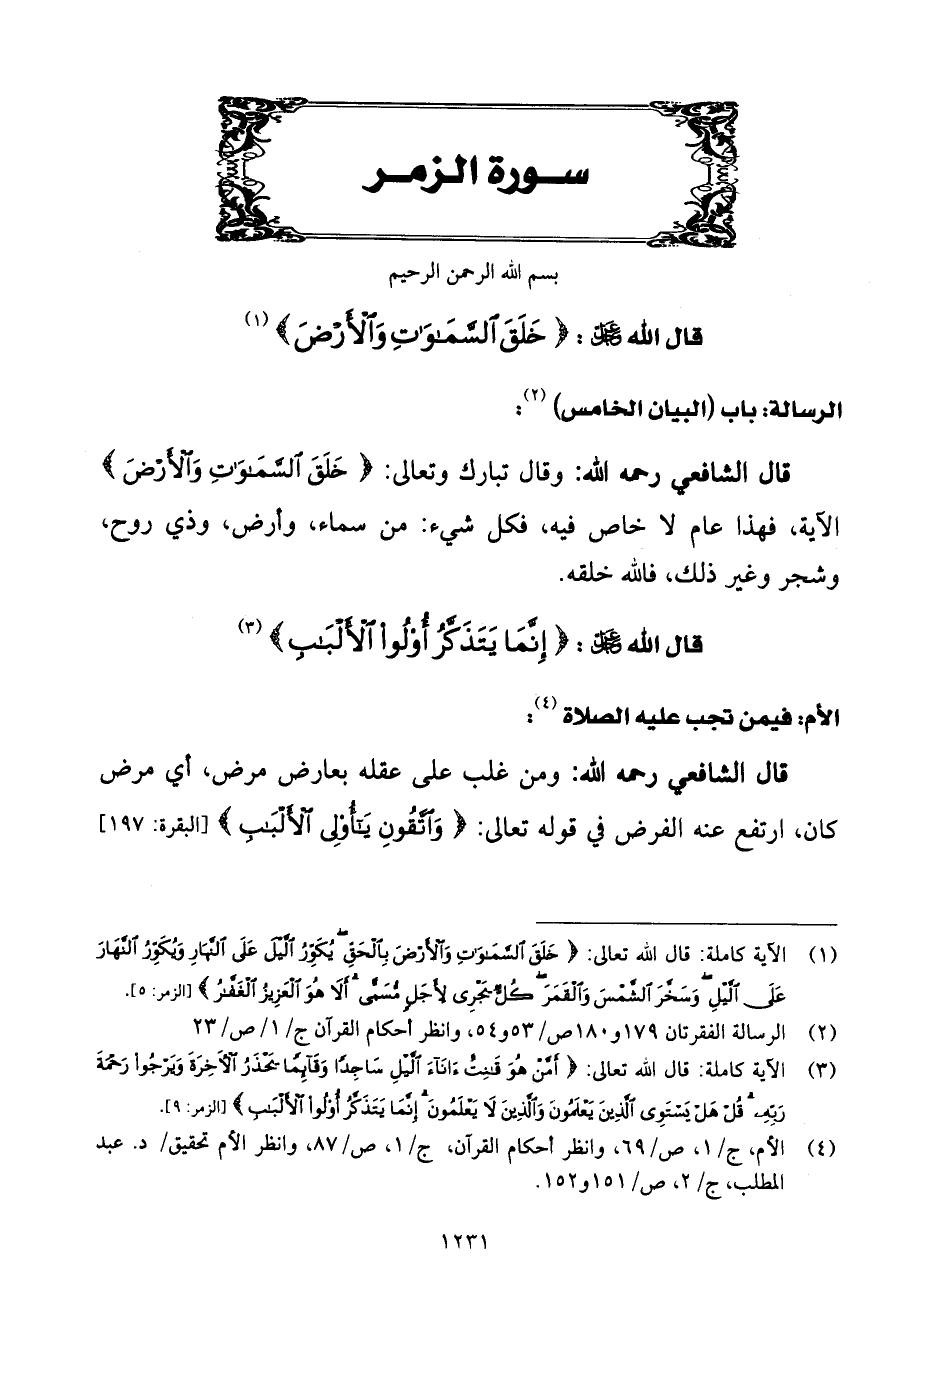 سورة الزمر
بسم الله الرحمن الرحيم
قال الله ﷻ : ﴿ خَلَقَ ٱلسَّمَـٰوَٰتِ وَٱلْأَرْضَ ﴾ (١)
الرسالة: باب (البيان الخامس) (٢):
قال الشافعي رحمه الله: وقال تبارك وتعالى: ﴿ خَلَقَ ٱلسَّمَـٰوَٰتِ وَٱلْأَرْضَ ﴾
الآية، فهذا عام لا خاص فيه، فكل شيء: من سماء، وأرض، وذي روح،
وشجر وغير ذلك، فالله خلقه.
قال الله ﷻ : ﴿ إِنَّمَا يَتَذَكَّرُ أُوْلُواْ ٱلْأَلْبَـٰبِ ﴾ (٣)
الأم: فيمن تجب عليه الصلاة (٤):
قال الشافعي رحمه الله: ومن غلب على عقله بعارض مرض، أي مرض
كان، ارتفع عنه الفرض في قوله تعالى: ﴿ وَٱتَّقُونِ يَـٰٓأُوْلِى ٱلْأَلْبَـٰبِ ﴾ [البقرة: ١٩٧]
(١) الآية كاملة: قال الله تعالى: ﴿ خَلَقَ ٱلسَّمَـٰوَٰتِ وَٱلْأَرْضَ بِٱلْحَقِّ ۖ يُكَوِّرُ ٱلَّيْلَ عَلَى ٱلنَّهَارِ وَيُكَوِّرُ ٱلنَّهَارَ
عَلَى ٱلَّيْلِ ۖ وَسَخَّرَ ٱلشَّمْسَ وَٱلْقَمَرَ ۖ كُلٌّ يَجْرِى لِأَجَلٍ مُّسَمًّى ۗ أَلَا هُوَ ٱلْعَزِيزُ ٱلْغَفَّـٰرُ ﴾ [الزمر: ٥].
(٢) الرسالة الفقرتان ١٧٩و١٨٠ص/٥٣و٥٤، وانظر أحكام القرآن ج/١/ص/٢٣
(٣) الآية كاملة: قال الله تعالى: ﴿ أَمَّنْ هُوَ قَـٰنِتٌ ءَانَآءَ ٱلَّيْلِ سَاجِدًا وَقَآئِمًا يَحْذَرُ ٱلْـَٔاخِرَةَ وَيَرْجُواْ رَحْمَةَ
رَبِّهِۦ ۗ قُلْ هَلْ يَسْتَوِى ٱلَّذِينَ يَعْلَمُونَ وَٱلَّذِينَ لَا يَعْلَمُونَ ۗ إِنَّمَا يَتَذَكَّرُ أُوْلُواْ ٱلْأَلْبَـٰبِ ﴾ [الزمر: ٩].
(٤) الأم، ج/١، ص/٦٩، وانظر أحكام القرآن، ج/١، ص/٨٧، وانظر الأم تحقيق/ د. عبد
المطلب، ج/٢، ص/١٥١و١٥٢.
١٢٣١